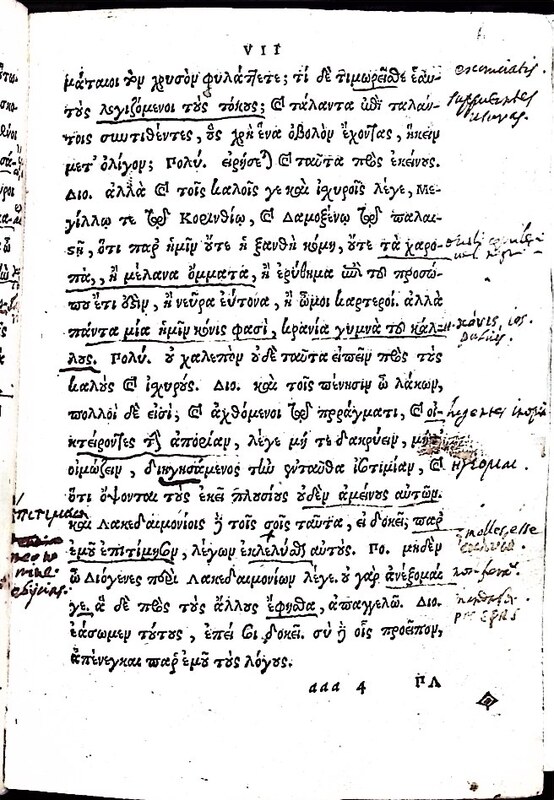 VII
μάταιοι τὸν χρυσὸν φυλάττετε; τί δὲ τιμωρεῖσθε ἑαυ-
τοὺς λογιζόμενοι τοὺς τόκους; καὶ τάλαντα ἐπὶ ταλάν-
τοις συντιθέντες, οὓς χρὴ ἕνα ὀβολὸν ἔχοντας, ἥκειν
μετ' ὀλίγον; Πολύ. εἰρήσεται καὶ ταῦτα πρὸς ἐκείνους.
Διο. ἀλλὰ καὶ τοῖς καλοῖς γε καὶ ἰχυροῖς λέγε, Με-
γίλλῳ τε τῷ Κορινθίῳ, καὶ Δαμοξένῳ τῷ παλαι-
στῇ, ὅτι παρ' ἡμῖν οὔτε ἡ ξανθὴ κόμη, οὔτε τὰ χαρο-
πὰ, ἢ μέλανα ὄμματα, ἢ ἐρύθημα ἐπὶ τοῦ προσώ-
που ἔτι ἐστὶν, ἢ νεῦρα εὔτονα, ἢ ὦμοι καρτεροί. ἀλλὰ
πάντα μία ἡμῖν κόνις φασὶ, κρανία γυμνὰ τοῦ κάλ-
λους. Πολύ. οὐ χαλεπὸν οὐδὲ ταῦτα εἰπεῖν πρὸς τοὺς
καλοὺς καὶ ἰχυρούς. Διο. καὶ τοῖς πένησιν ὦ λάκων,
πολλοὶ δὲ εἰσὶ; καὶ ἀχθόμενοι τῷ πράγματι, καὶ οἰ-
κτείροντες τὴν ἀπορίαν, λέγε μή τε δακρύειν, μήτε
οἰμώζειν, διηγησάμενος τὴν ἐνταῦθα ἰσοτιμίαν, καὶ
ὅτι ὄψονται τοὺς ἐκεῖ πλουσίους οὐδὲν ἀμείνους αὐτῶν.
καὶ Λακεδαιμονίοις δὲ τοῖς σοῖς ταῦτα, εἰ δοκεῖ, παρ'
ἐμοῦ ἐπιτίμησον, λέγων ἐκλελύσθαι αὐτούς. Πο. μηδὲν
ὦ Διόγενες περὶ Λακεδαιμονίων λέγε. οὐ γὰρ ἀνέξομαί
γε. ἃ δὲ πρὸς τοὺς ἄλλους ἔφησθα, ἀπαγγελῶ. Διο.
ἐάσωμεν τούτους, ἐπεί σοι δοκεῖ. σὺ δὲ οἷς προεῖπον,
ἀπένεγκαι παρ' ἐμοῦ τοὺς λόγους.
aaa 4 ΠΛ